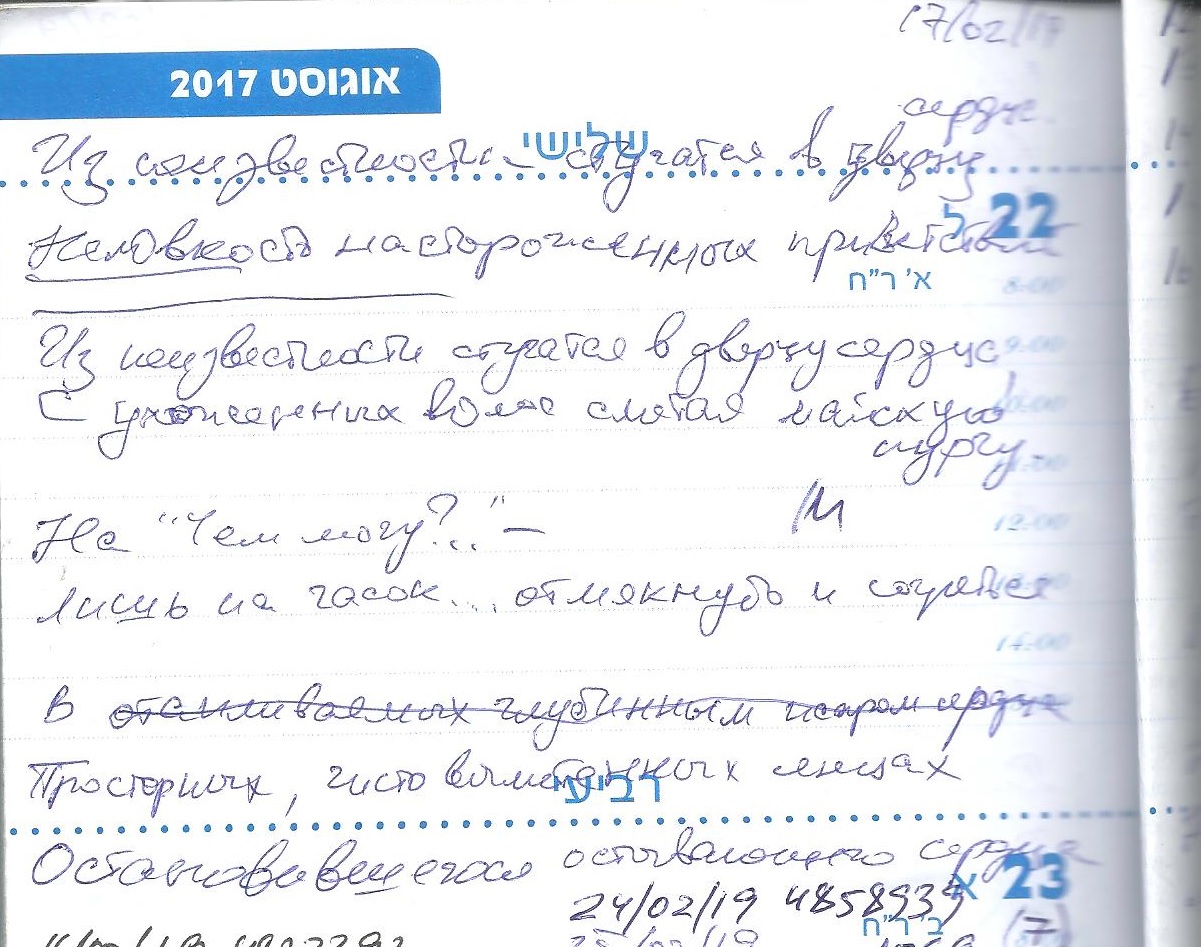 17/02/17
אוגוסט 2017
сердце
שלישי
Из неизвестности – стучатся в дверцу
22 ל
Неловкость настороженных приветствий
א' ר"ח
8:00
Из неизвестности стучатся в дверцу сердца
9:00
С ухоженных волос сметая майскую
пургу
11:00
На "Чем могу?.." –
12:00
Лишь на часок... отмякнуть и согреться
14:00
В отапливаемых глубинным жаром сердца
Просторных, чисто выметенных
רביעי
Остановившегося остывающего сердца
23 א
24/02/19 4858939
ב' ר"ח
(7)